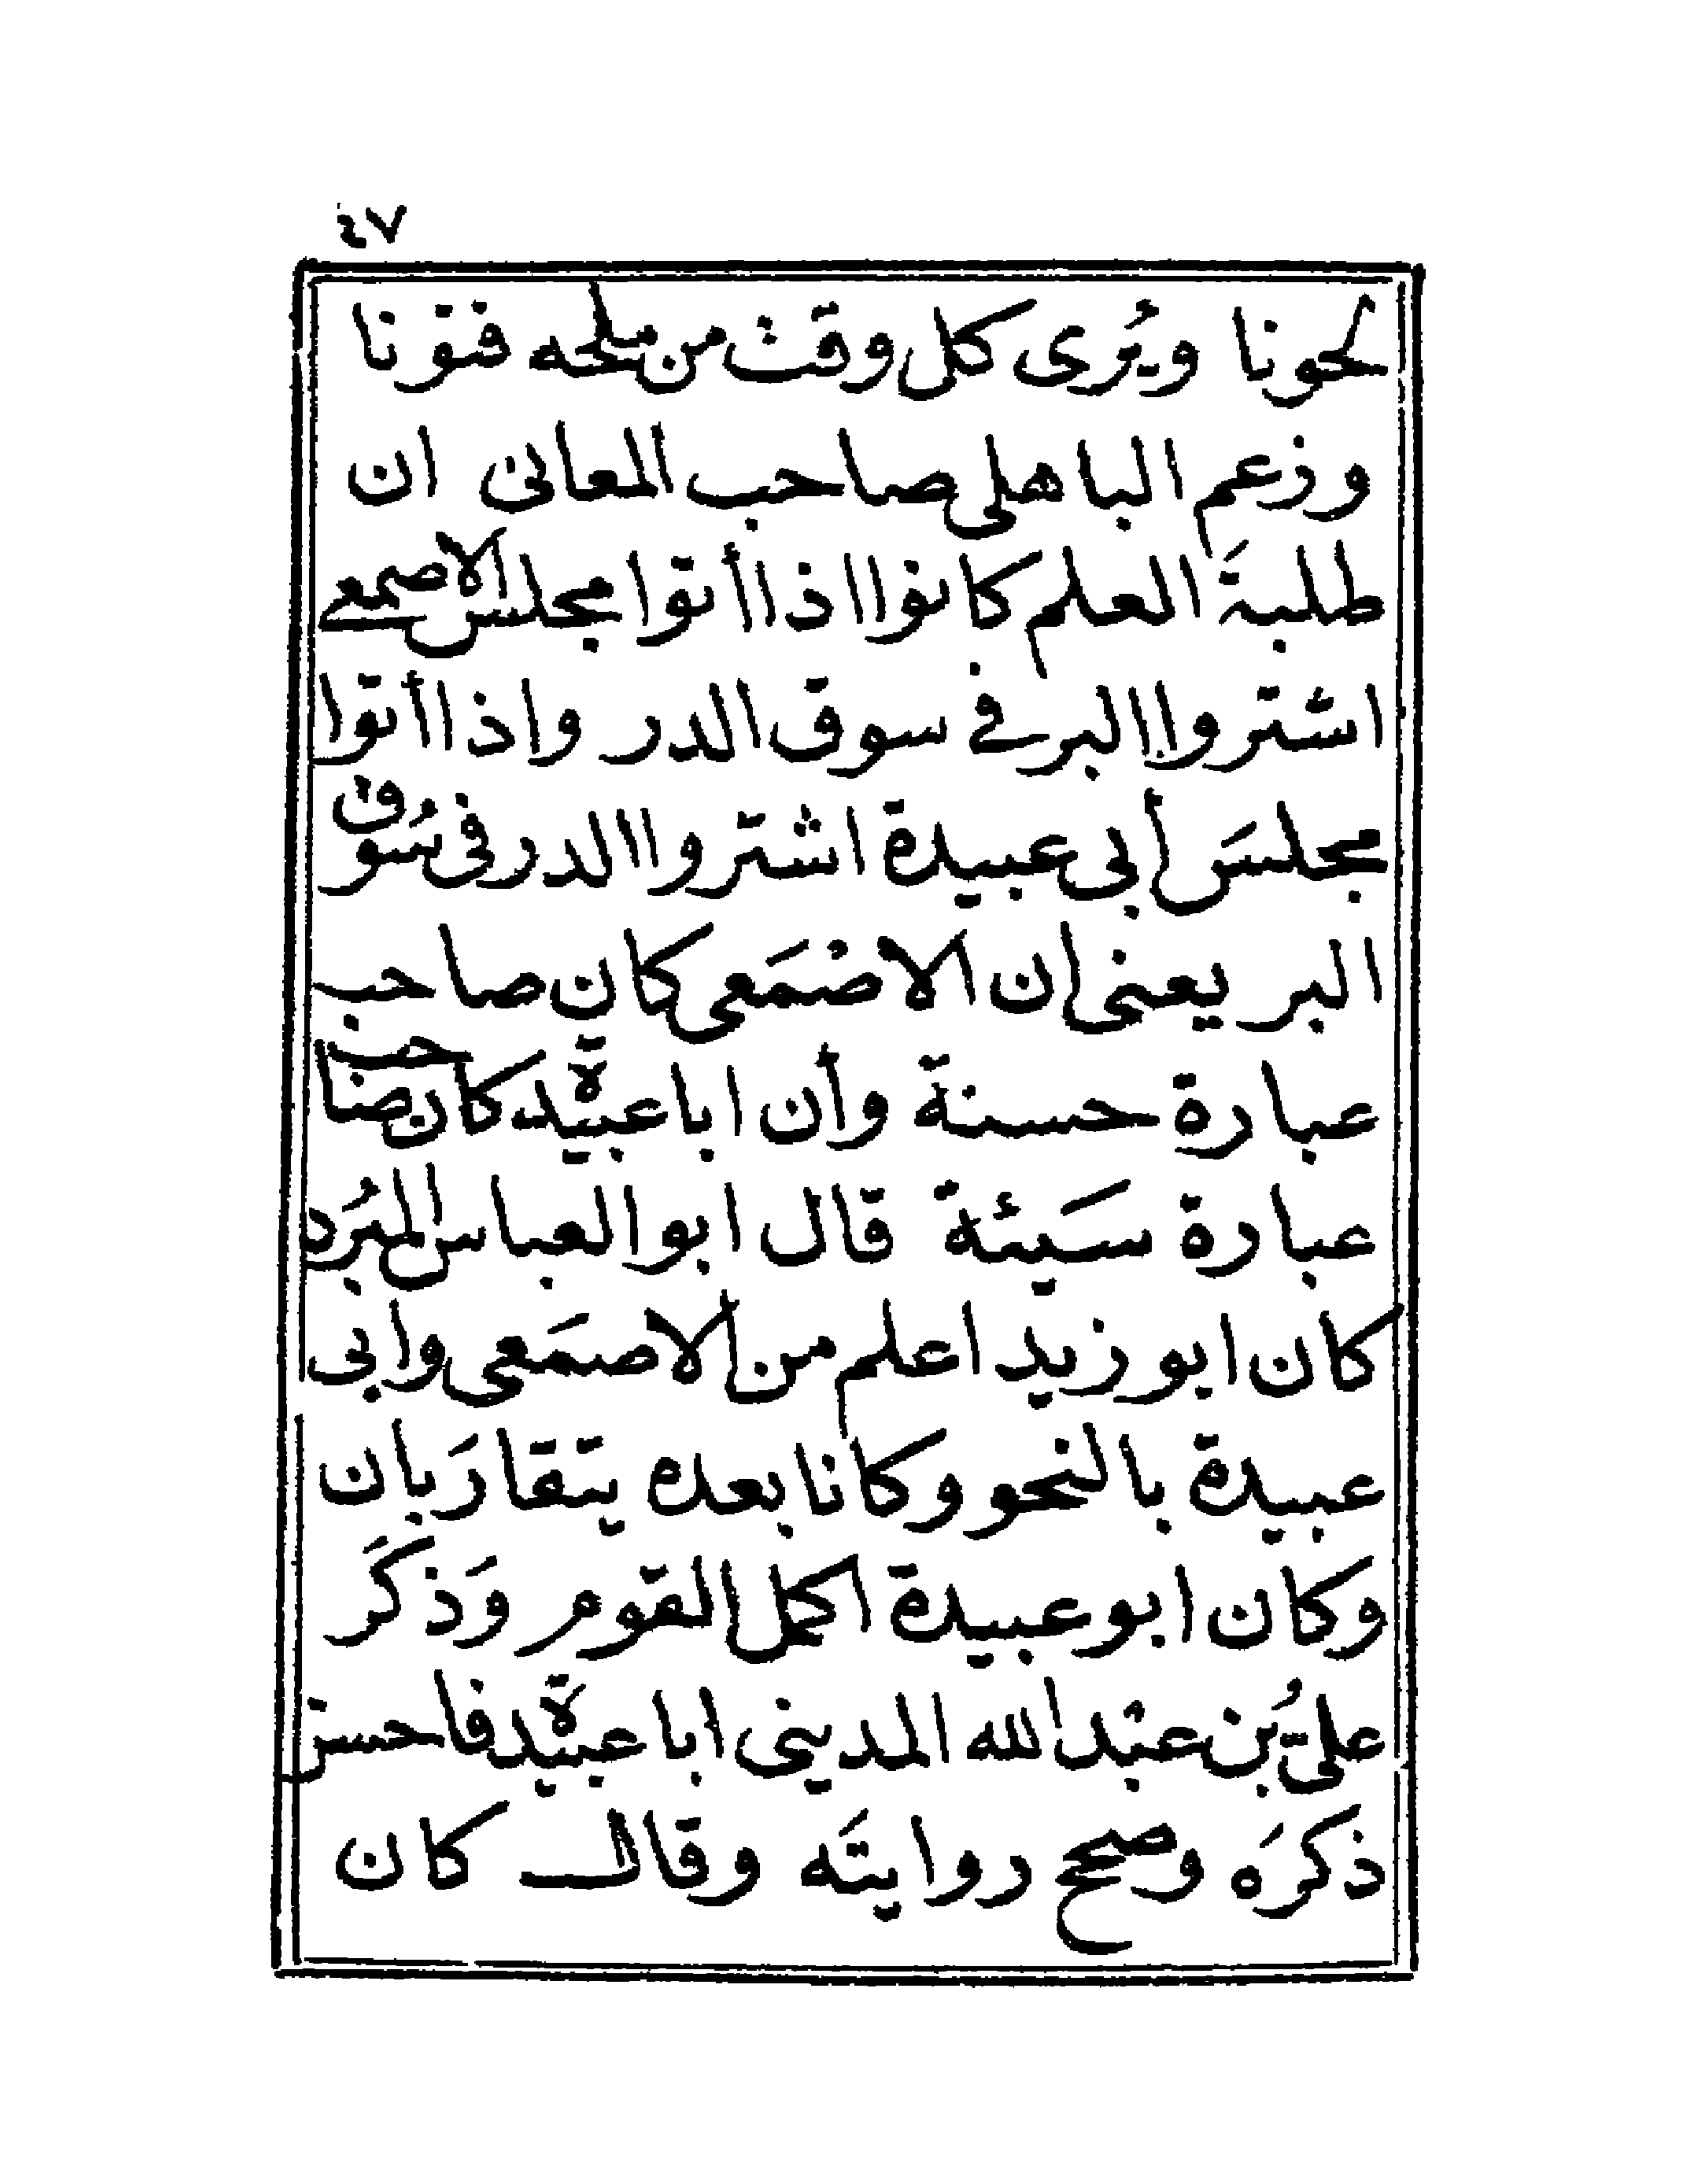 ٤٧
لحونا ويُرى كل وقت من ملحه فنونا
وزعم الباهلى صاحب المعانى ان
طلبةَ العلم كانوا اذا أتوا مجلس الاصمعى
اشتروا البر فى سوق الدر واذا أتوا
مجلسَ أبى عبيدة اشتروا الدر فى سُوق
البر يعنى ان الاصْمَعى كان صاحب
عبارة حسنة وأن ابا عبيدة كان صاحب
عبارة سَيئة قال ابو العباس المبُرَد
كان ابو زيد اعلم من الاصمَعى وابى
عبيدة بالنحو وكانا بعده يتقارَبان
وكان ابو عبيدة اكمل القوم وَذكَر
علىُّ بُن عبْد الله المدينى ابا عبيدة فاحسن
ذكرَه وصحح روايتَه وقال كان